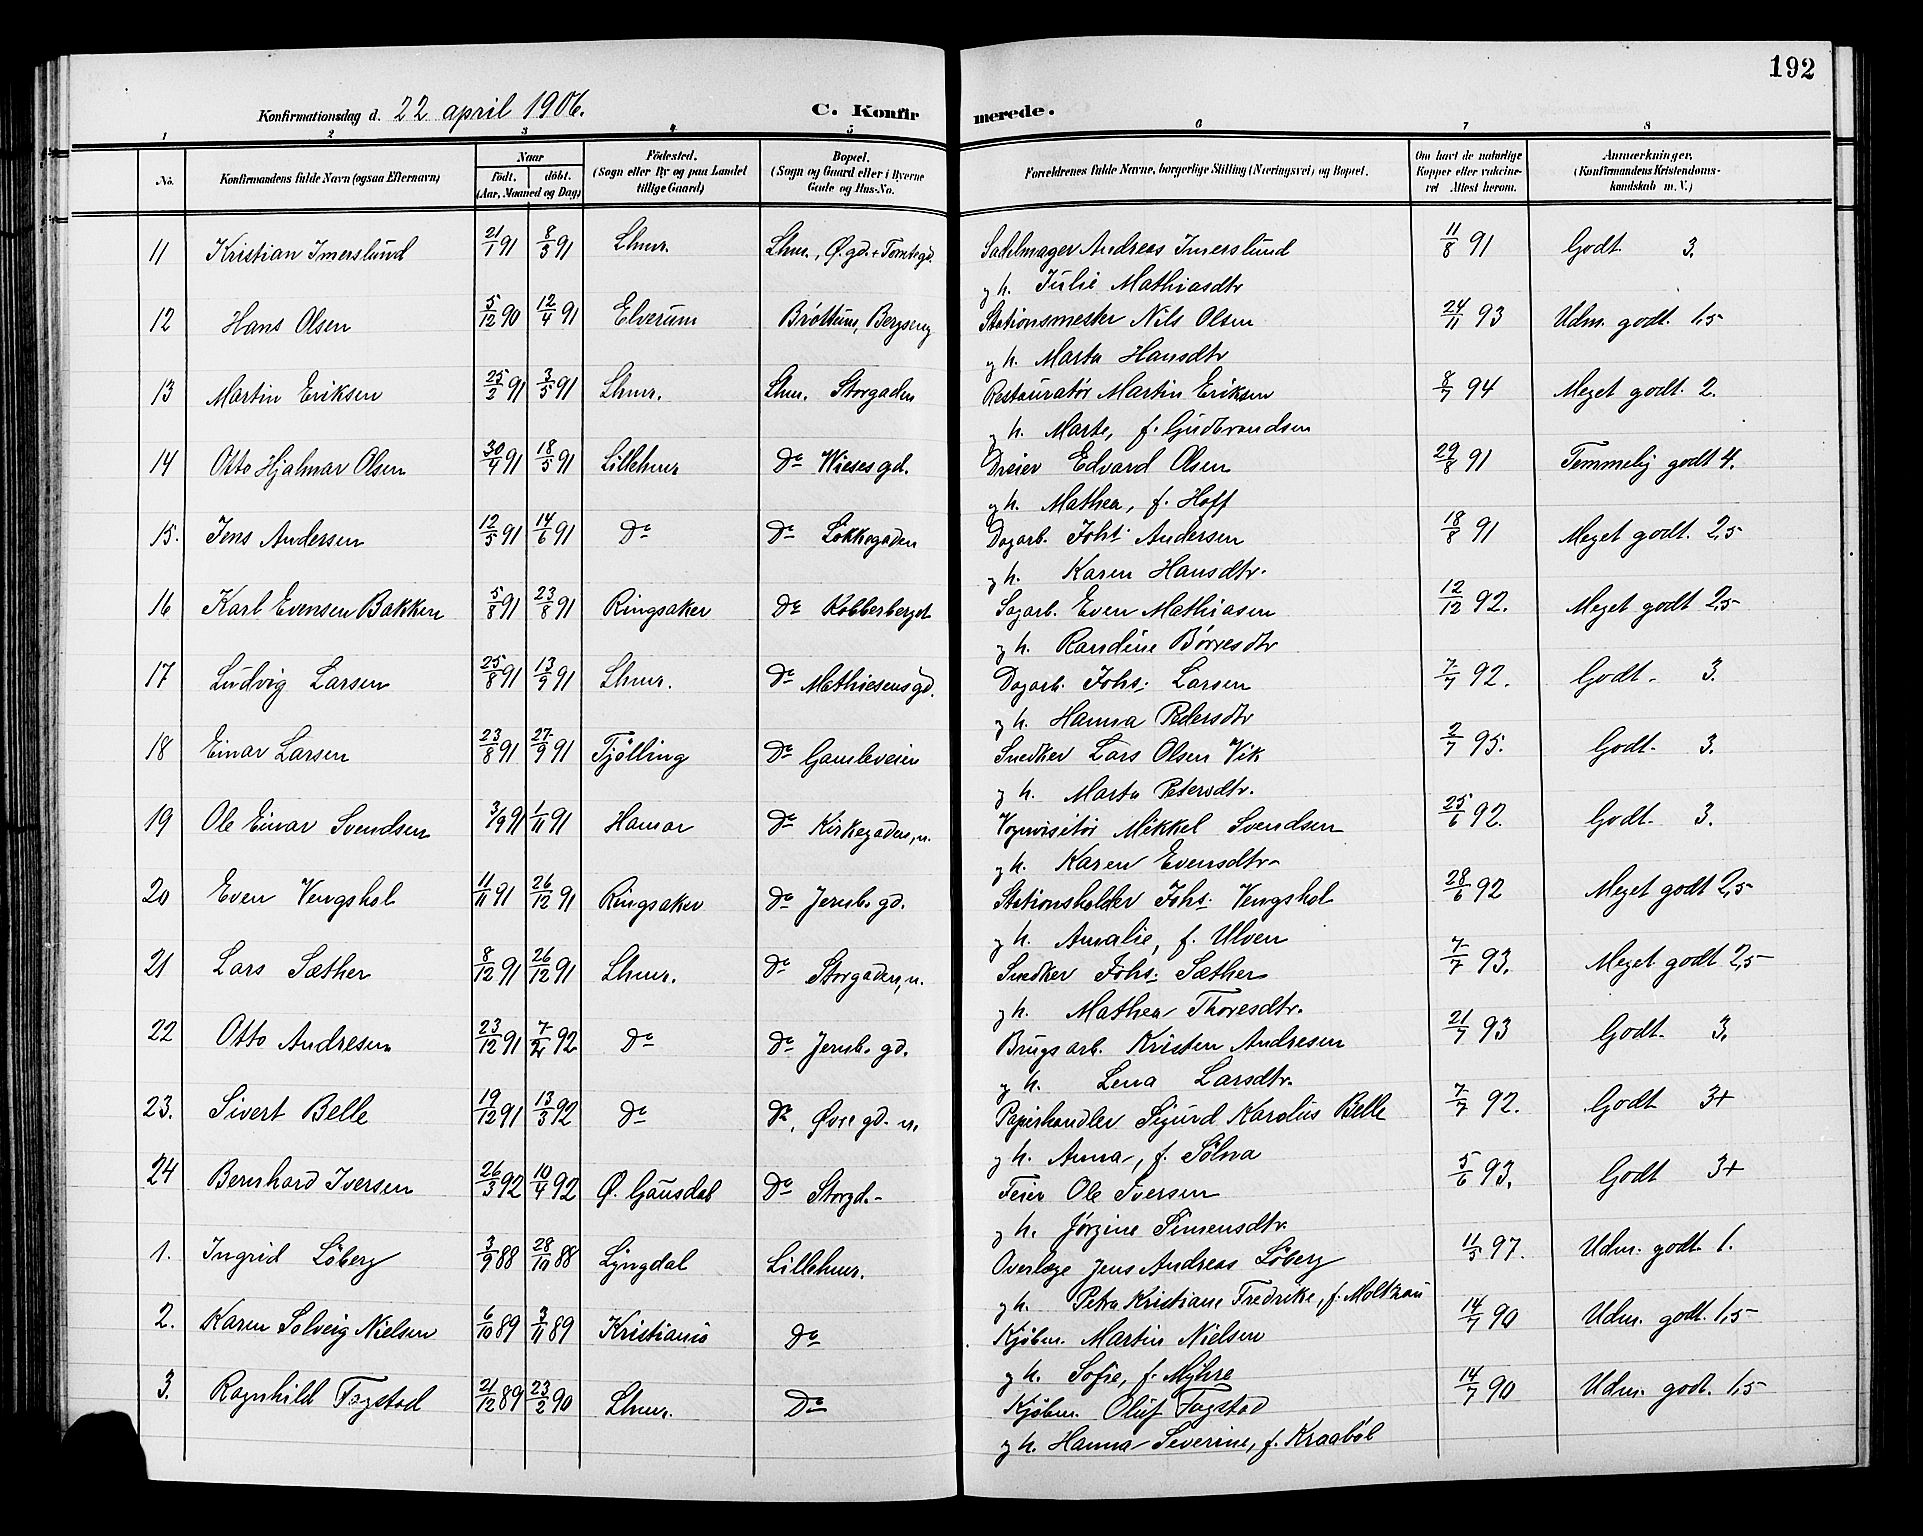 192
Konfirmationsdag d. 22 april 1906. C. Konfirmerede.
1 2 3 4 5 6 7 8
No. Konfirmandens fulde Navn (ogsaa Efternavn) Naar født. døbt. (Aar, Maaned og Dag) Fødested. (Sogn eller By og paa Landet tillige Gaard) Bopæl. (Sogn og Gaard eller i Byerne Gade og Hus-No. Forældrenes fulde Navne, borgerlige Stilling (Næringsvei) og Bopæl. Om havt de naturlige Kopper eller vakcineret Attest herom. Anmærkninger. (Konfirmandens Kristendomskundskab m. V.)
11 Kristian Imerslund 21/1 91 8/3 91 Lhmr. Lhm., Ø. gd. + Tomtegd. Sadelmager Andreas Imerslund 11/8 91 Godt. 3.
og h. Julie Mathiasdtr
12 Hans Olsen 5/12 90 12/4 91 Elverum Brøttum, Bergseng Stationsmester Nils Olsen 24/11 93 Udm. godt. 1,5
og h. Marta Hansdtr
13 Martin Eriksen 25/2 91 3/5 91 Lhmr. Lhm. Storgaden Restauratør Martin Eriksen 8/7 94 Meget godt. 2.
og h. Marte, f. Gudbrandsen
14 Otto Hjalmar Olsen 30/4 91 18/5 91 Lillehmr. Do Wieses gd. Dreier Edvard Olsen 29/8 91 Temmelig godt 4.
og h. Mathea, f. Hoff
15. Jens Andersen 12/5 91 14/6 91 Do Do Løkkegaden Dagarb. Johs. Andersen 18/8 91 Meget godt. 2,5
og h. Karen Hansdtr.
16 Karl Evensen Bakken 5/8 91 23/8 91 Ringsaker Do Kobberberget Sagarb. Even Mathiasen 12/12 92. Meget godt 2,5
og h. Randine Børresdtr
17 Ludvig Larsen 25/8 91 13/9 91 Lhmr. Do Mathiesens gd. Dagarb. Johs. Larsen 7/7 92. Godt. 3.
og h. Hanna Pedersdtr
18 Einar Larsen 23/8 91 27/9 91 Tjølling Do Gamleveien Snedker Lars Olsen Vik 2/7 95. Godt. 3.
og h. Marta Petersdtr.
19 Ole Einar Svendsen 3/9 91 1/11 91 Hamar Do Kirkegaden, n. Vognvisitør Mikkel Svendsen 25/6 92. Godt. 3.
og h. Karen Evensdtr.
20 Even Vengshol 11/11 91 26/12 91 Ringsaker Do Jernb. gd. Stationsholder Johs. Vengshol 28/6 92 Meget godt 2,5
og h. Amalie, f. Ulven
21 Lars Sæther 8/12 91 26/12 91 Lhmr. Do Storgaden, n. Snedker Johs. Sæther 7/7 93. Meget godt 2,5
og h. Mathea Thoresdtr.
22 Otto Andresen 23/12 91 7/2 92 Do Do Jernb. gd. Brugsarb. Kristen Andresen 21/7 93 Godt. 3.
og h. Lena Larsdtr.
23. Sivert Belle 19/12 91 13/3 92 Do Do, Øvre gd. n. Papirhandler Sigurd Karolius Belle 7/7 92. Godt 3+
og h. Anna, f. Sølna
24 Bernhard Iversen 26/3 92 10/4 92 Ø. Gausdal Do Storgd. Feier Ole Iversen 5/6 93. Godt 3+
og h. Jørgine Simensdtr.
1. Ingrid Løberg 3/9 88 28/10 88 Lyngdal Lillehmr. Overlæge Jens Andreas Løberg 11/5 97. Udm. godt. 1.
og h. Petra Kristiane Fredrike, f. Moltzau
2. Karen Solveig Nielsen 6/10 89 3/11 89 Kristiania Do Kjøbm. Martin Nielsen 14/7 90 Udm. godt. 1,5
og h. Sofie, f. Myhre
3. Ragnhild Fagstad 21/12 89 23/2 90 Lhmr. Do Kjøbm. Oluf Fagstad 14/7 90 Udm. godt. 1,5
og h. Hanna Severine, f. Kraabøl